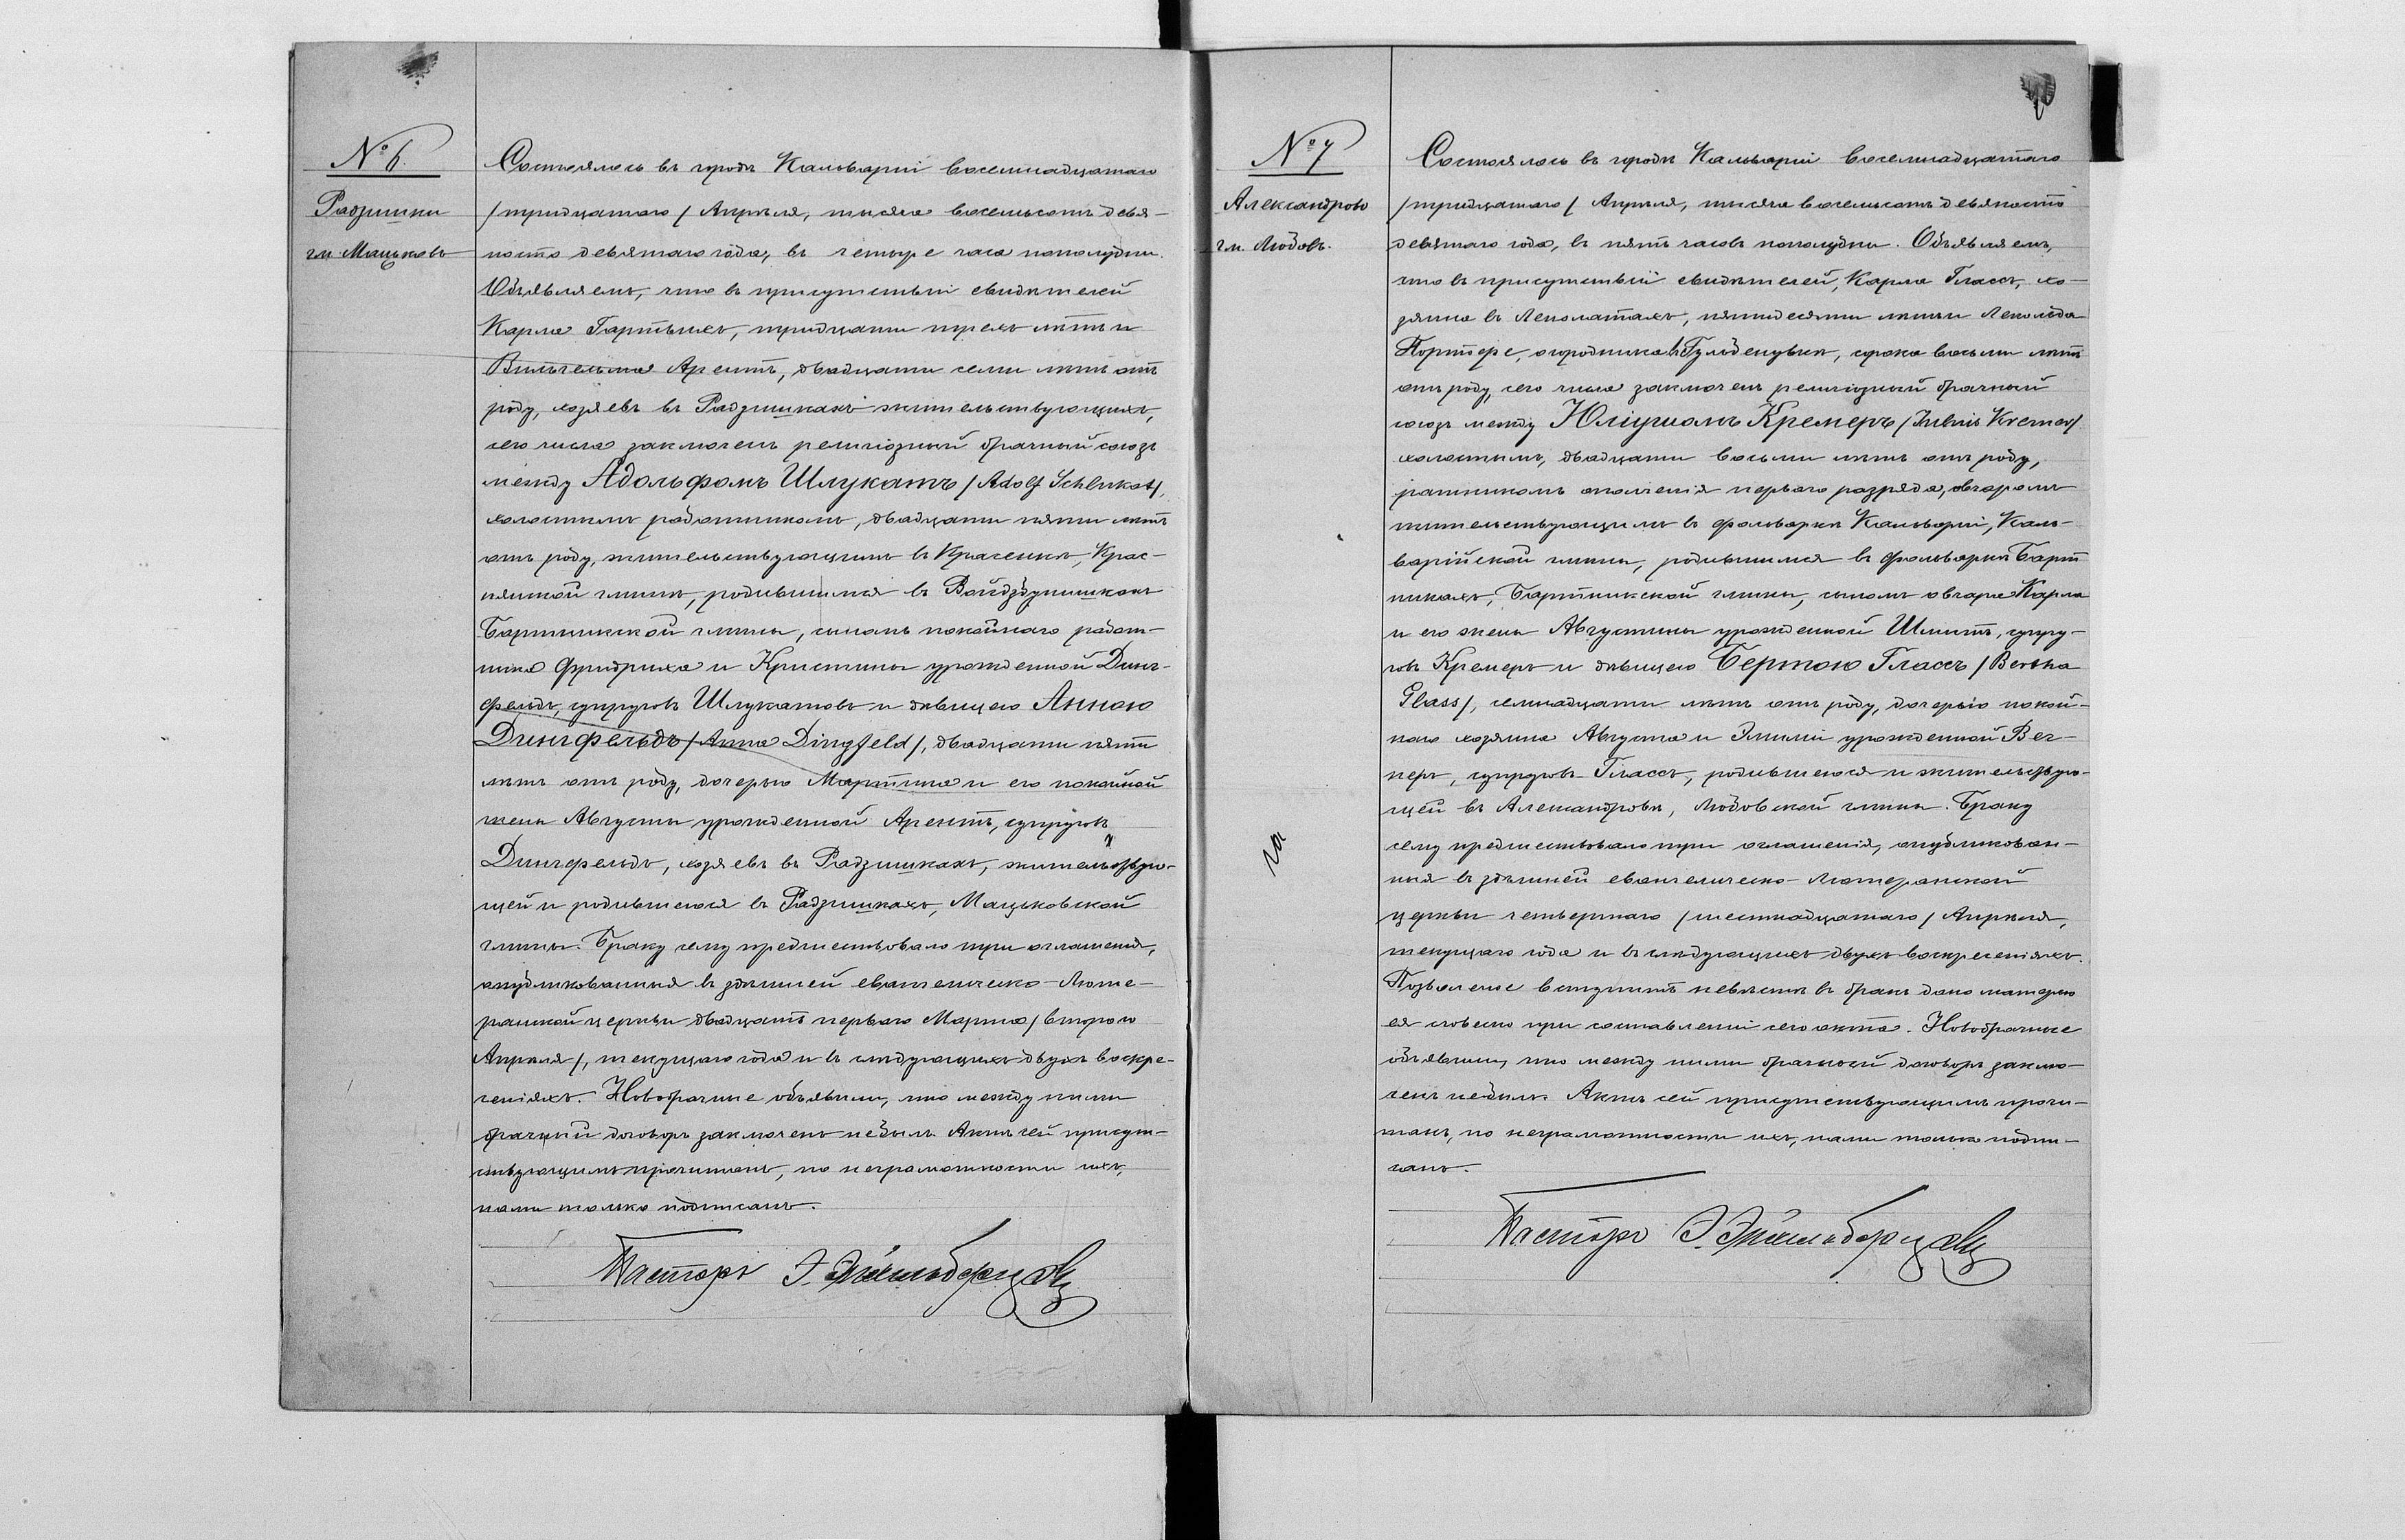 № 6.
Радзишки
гм. Мацьковъ
Состоялось въ городѣ Кальваріи восемнадцатаго
/тридцатаго/ Апрѣля, тысяча восемьсотъ девя-
носто девятаго года, въ четыре часа пополудни.
Объявляемъ, что въ присутствіи свидѣтелей
Карла Гартвихъ, тридцати трехъ лѣтъ и
Вильгельма Арентъ, двадцати семи лѣтъ отъ
роду, хозяевъ въ Радзишкахъ жительствующихъ,
сего числа заключенъ религіозный брачный союзъ
между Адольфомъ Шлукатъ /Adolf Schlukat/,
холостымъ работникомъ, двадцати пяти лѣтъ
отъ роду, жительствующимъ въ Красенкѣ, Крас-
нянской гмины, родившимся въ Войдздунишкахъ
Бартникской гмины, сыномъ покойнаго работ-
ника Фридриха и Кристины урожденной Динг-
фельдъ, супруговъ Шлукатовъ и дѣвицею Анною
Дингфельдъ /Anna Dingfeld/, двадцати пяти
лѣтъ отъ роду, дочерью Мартина и его покойной
жены Августы урожденной Арентъ, супруговъ
Дингфельдъ, хозяевъ въ Радзишкахъ, жительствую-
щей и родившеюся въ Радзишкахъ, Мацьковской
гмины. Браку сему предшествовало три оглашенія,
опубликованныя въ здѣшней евангелическо-Люте-
ранской церкви двадцать перваго Марта /второго
Апрѣля/, текущаго года и въ слѣдующихъ двухъ воскре-
сеніяхъ. Новобрачные объявили, что между ними
брачный договоръ заключенъ небылъ. Актъ сей присут-
ствующимъ прочитанъ, по неграмотности ихъ,
нами только подписанъ.
Пасторъ
№ 7
Александрово
гм. Любовъ.
Состоялось въ городѣ Кальваріи восемнадцатаго
/тридцатаго/ Апрѣля, тысяча восемьсотъ девяносто
девятаго года, въ пять часовъ пополудни. Объявляемъ,
что въ присутствіи свидѣтелей, Карла Глассъ, хо-
зяина въ Леколатахъ, пятидесяти лѣтъ и Леопольда
Портере, огородника въ Гульденувкѣ, сорока восьми лѣтъ
отъ роду, сего числа заключенъ религіозный брачный
союзъ между Юліушомъ Кремеръ /Julius Kremer/
холостымъ, двадцати восьми лѣтъ отъ роду,
ратникомъ ополченія перваго разряда, овчаромъ
жительствующимъ въ фольваркѣ Кальваріи, Каль-
варійской гмины, родившимся въ фольваркѣ Барт
никахъ, Бартникской гмины, сыномъ овчара Карла
и его жены Августины урожденной Шмитъ, супру-
говъ Кремеръ и дѣвицею Бертою Глассъ /Bertha
Glass/, семнадцати лѣтъ отъ роду, дочерью покой-
наго хозяина Августа и Эмиліи урожденной Вег-
неръ, супруговъ Глассъ, родившеюся и жительствую-
щей въ Александровѣ, Любовской гмины. Браку
сему предшествовало три оглашенія, опубликован-
ныя въ здѣшней евангелическо-Лютеранской
церкви четвертаго /шестнадцатаго/ Апрѣля,
текущаго года и въ слѣдующихъ двухъ воскресеніяхъ.
Позволеніе вступить невѣстѣ въ бракъ дано матерью
ея словесно при составленіи сего акта. Новобрачные
объявили, что между ними брачный договоръ заклю-
ченъ небылъ. Актъ сей присутствующимъ прочи-
танъ, по неграмотности ихъ, нами только подпи-
санъ.
Пасторъ